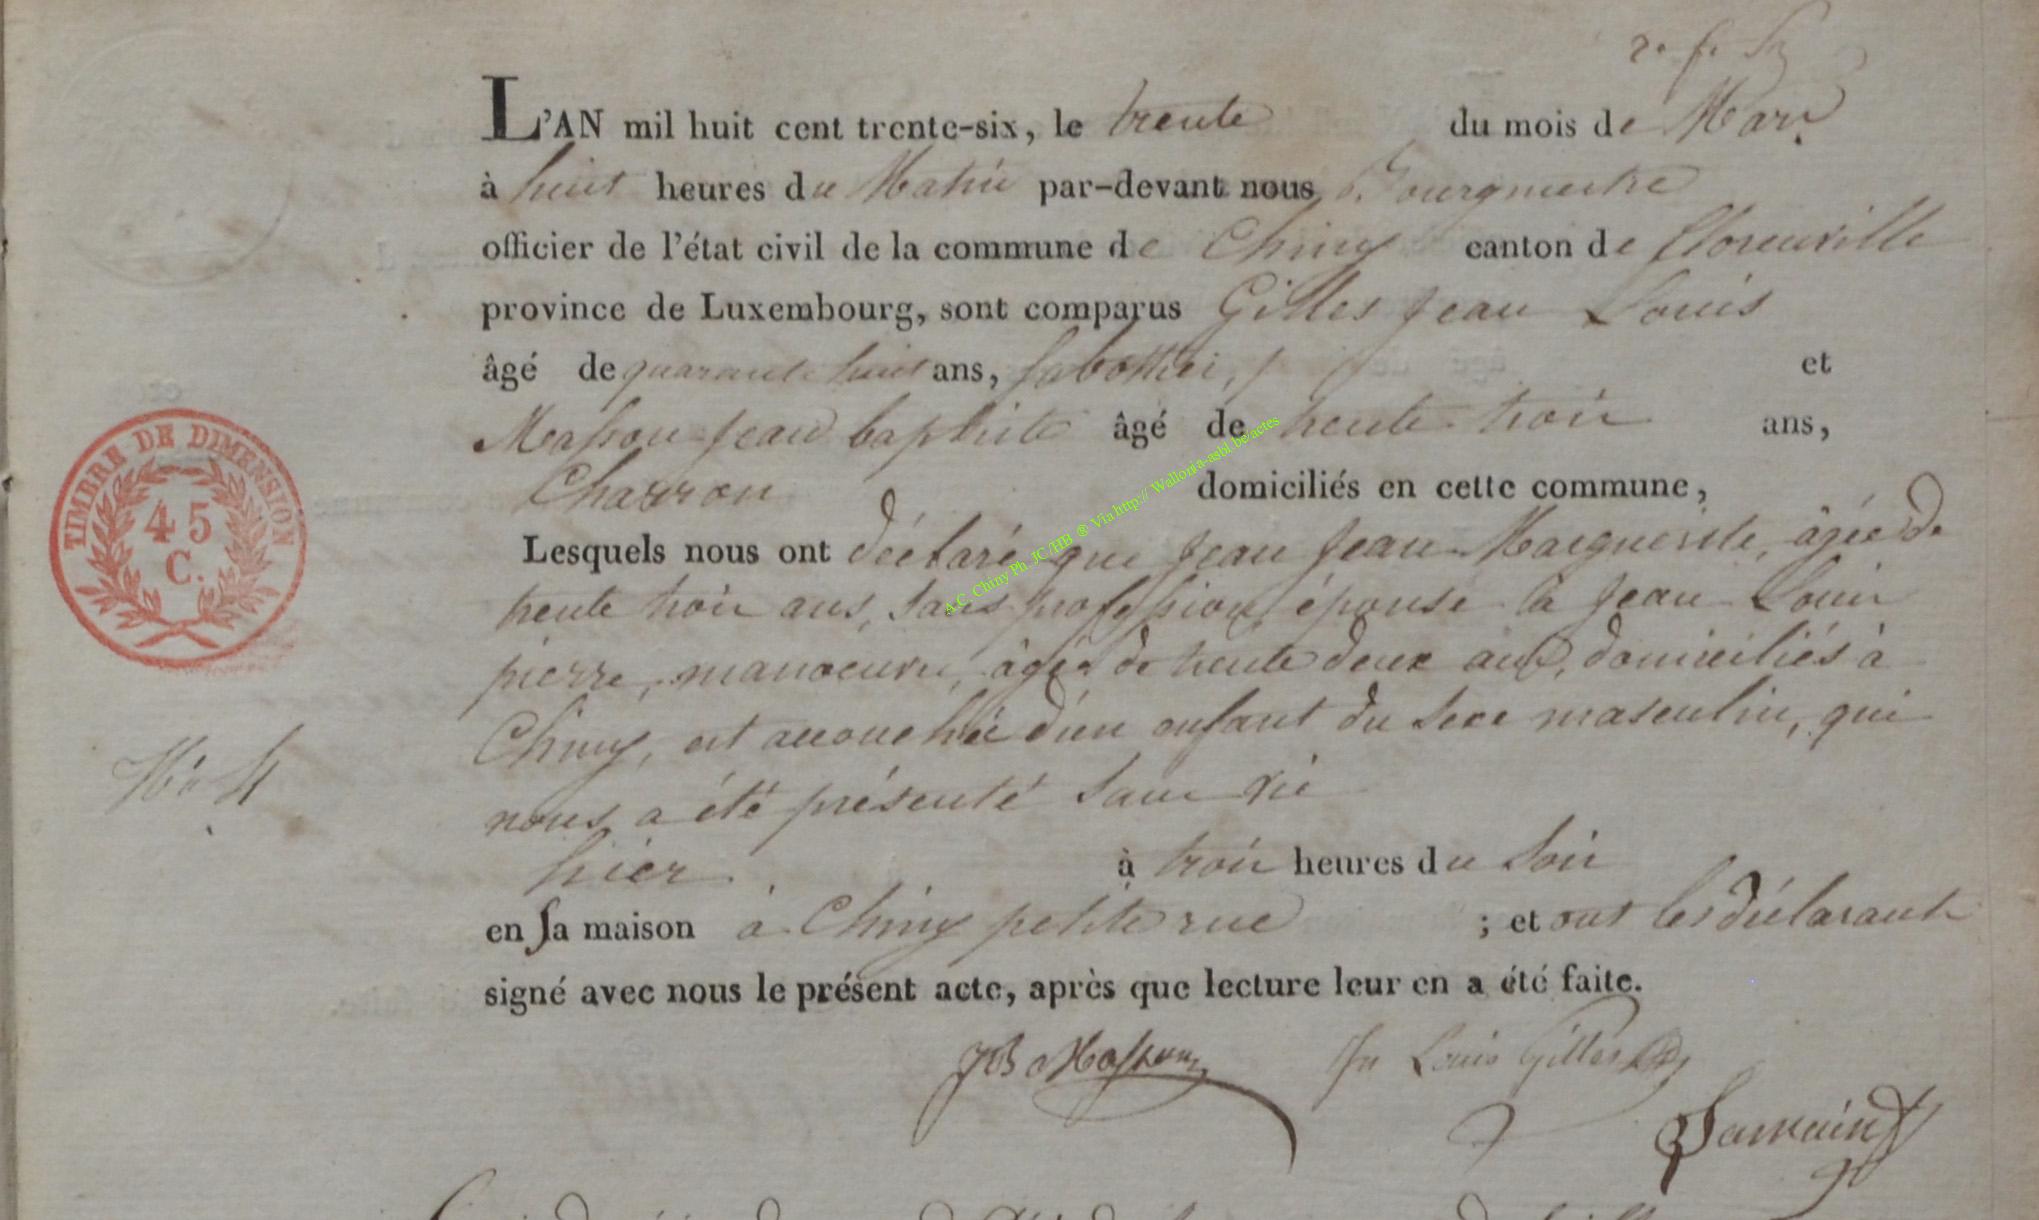 L'AN mil huit cent trente-six, le trente du mois de Mars
à huit heures du Matin par-devant nous Bourgmestre
officier de l'état civil de la commune de Chiny canton de florenville
province de Luxembourg, sont comparus Gilles Jean Louis
âgé de quarante huit ans, sabottier, et
Masson Jean baptiste âgé de trente trois ans,
Charron domiciliés en cette commune,
TIMBRE DE DIMENSION
45
C.
Lesquels nous ont déclaré que Jean Jean Marguerite, âgée de
trente trois ans, sans profession, épouse à Jean Louis
pierre, manoeuvre, âgée de trente deux ans, domiciliés à
Chiny, est accouchée d'un enfant du sexe masculin, qui
nous a été présenté sans vie
hier à trois heures du soir
en sa maison à Chiny petite rue ; et ont les déclarants
signé avec nous le présent acte, après que lecture leur en a été faite.
JB Masson Jn Louis Gilles
A.C. Chiny Ph. JC/HB ® Via http:// Wallonia-asbl.be/actes